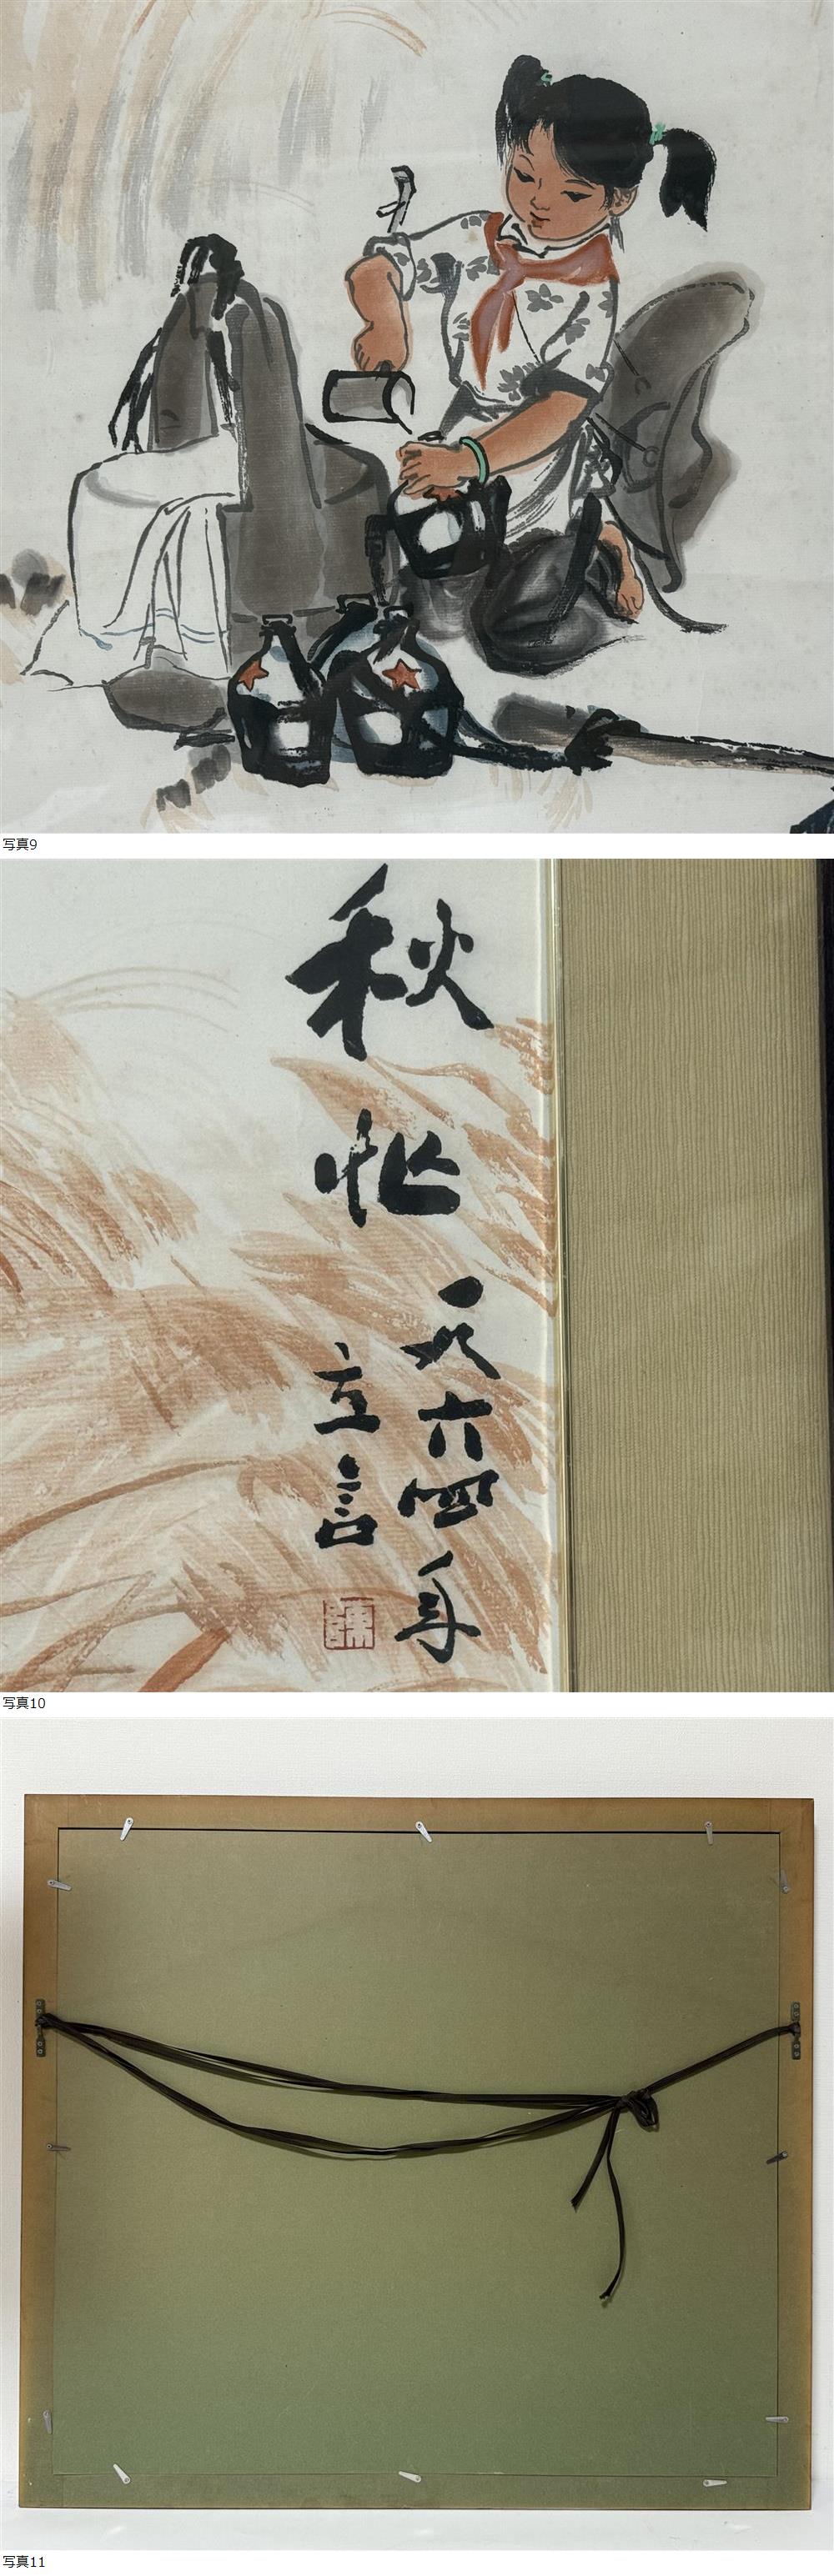 写真9
秋忙
一九六四年
立言
写真10
写真11